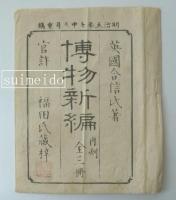 明治五年壬申
月重鐫
英國合信氏著
博物新編
全三冊
官許
福田氏藏梓
suimeido